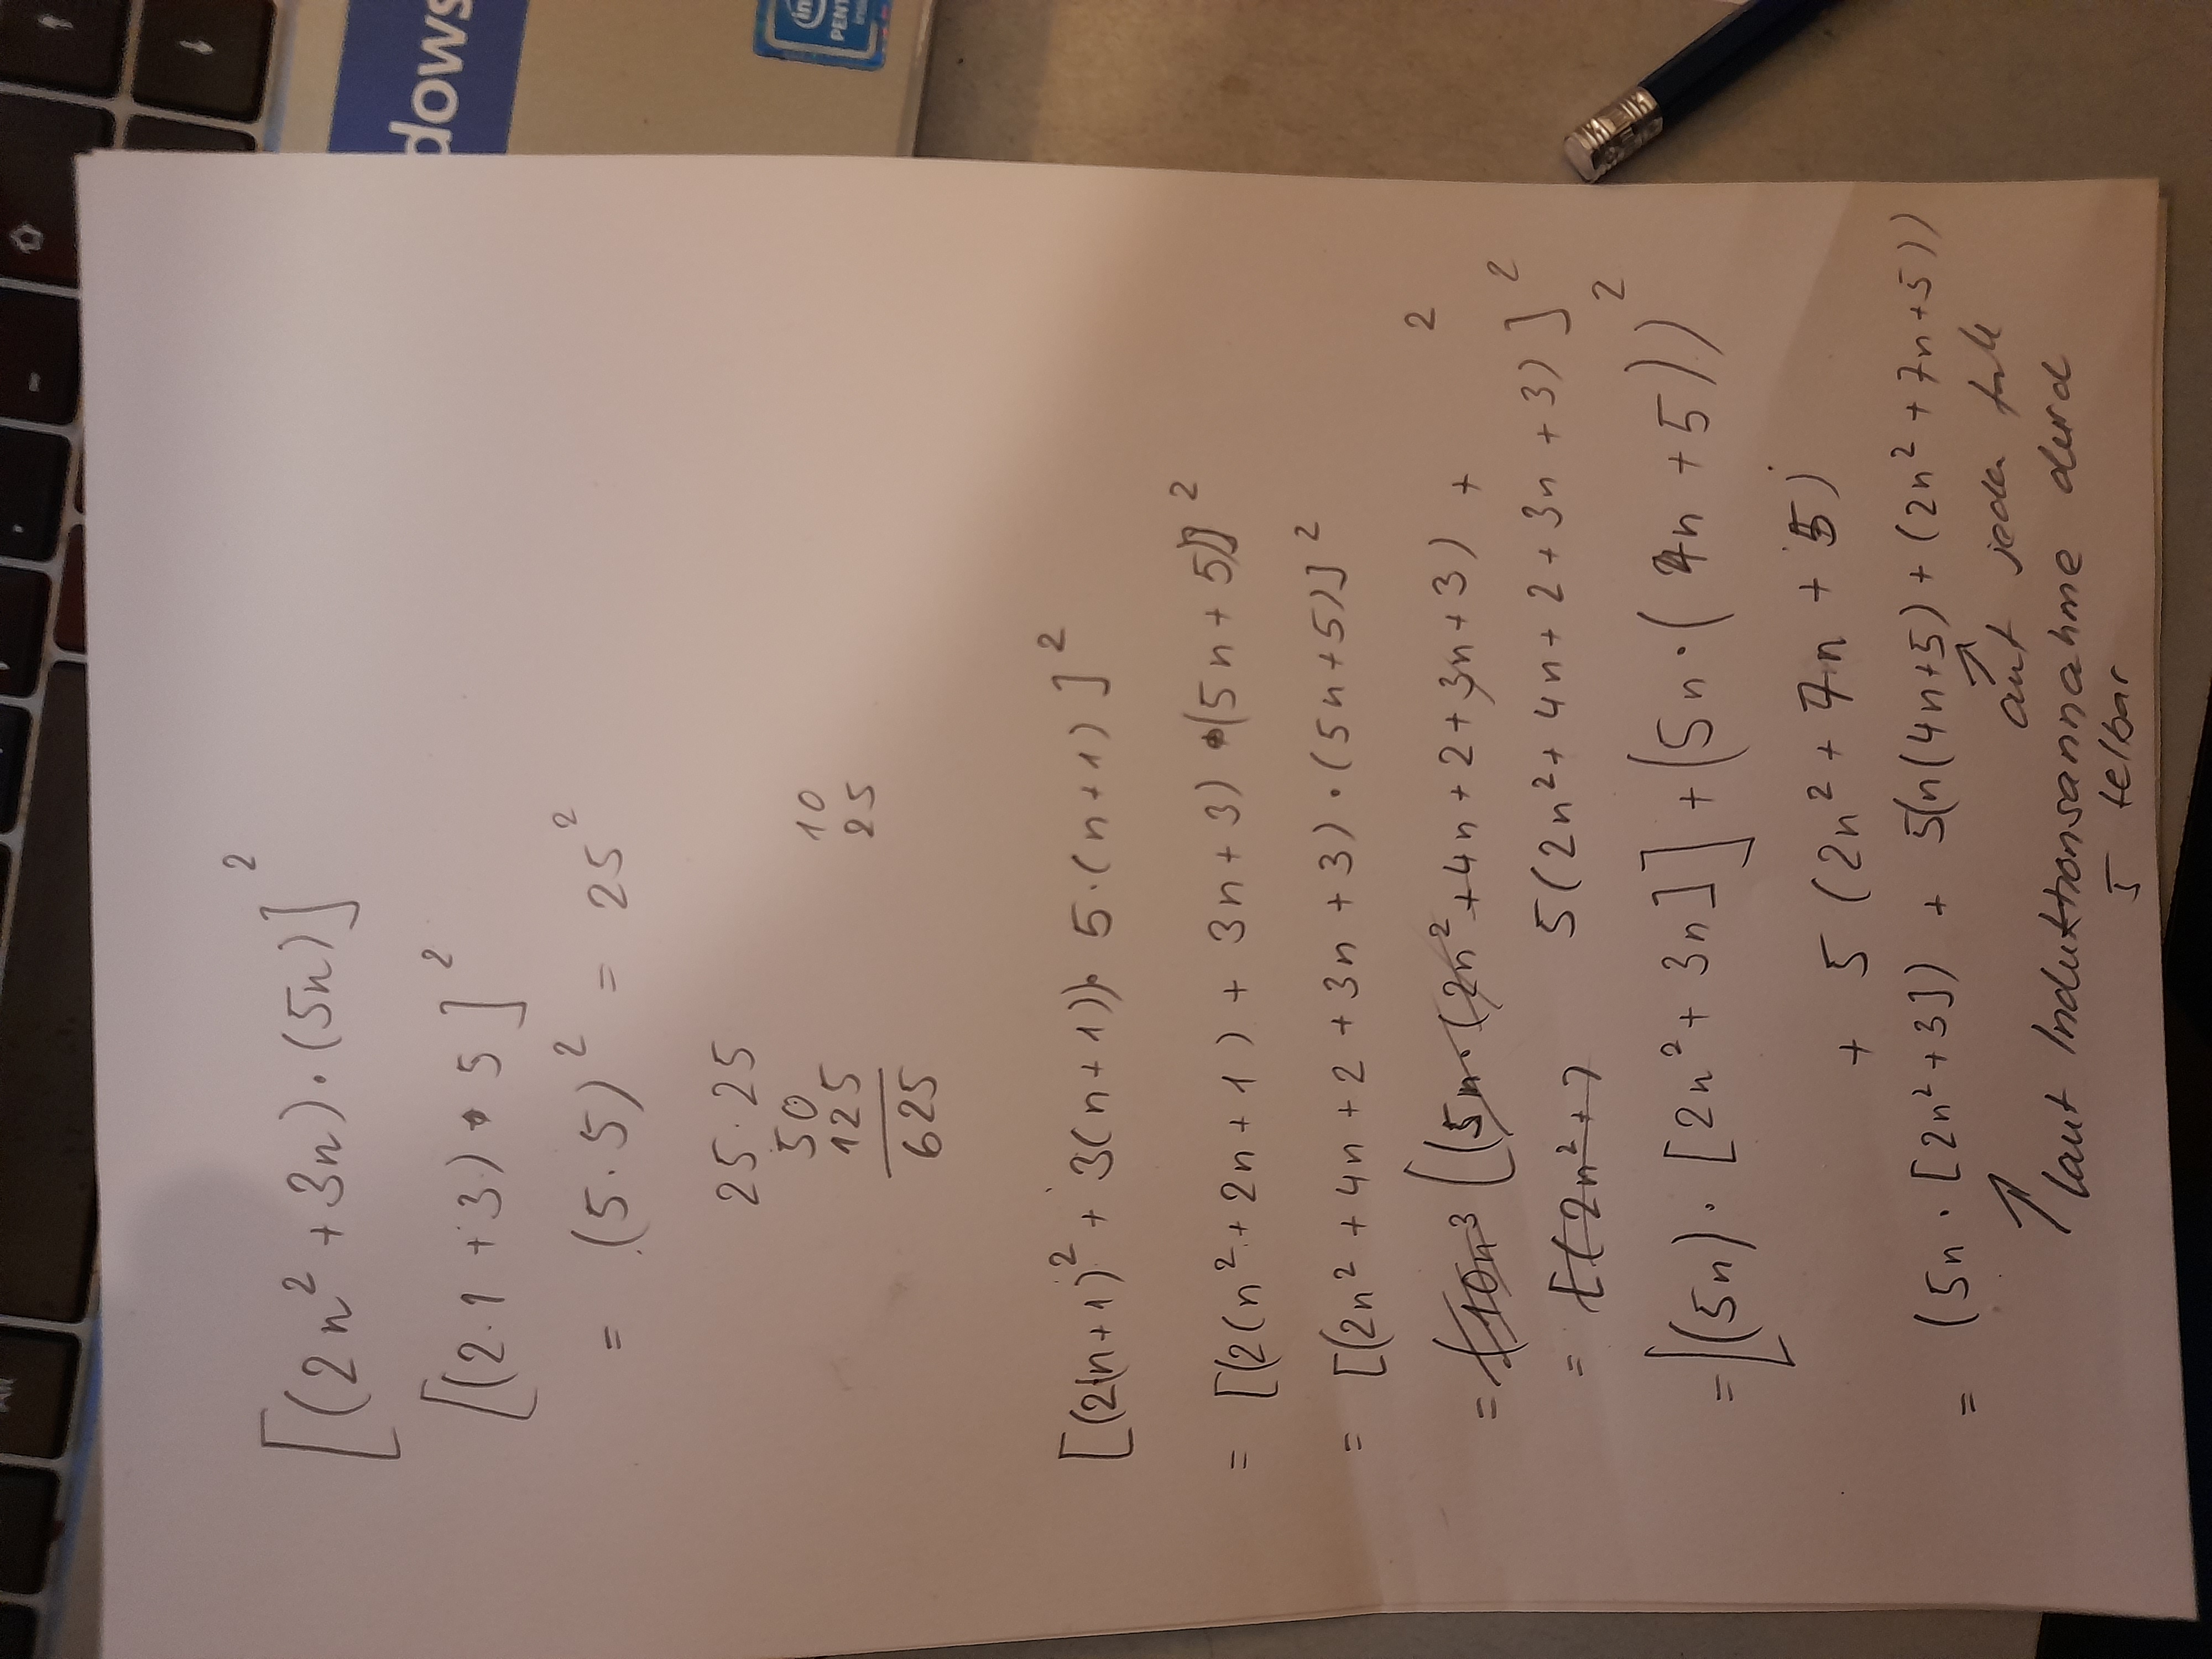 [(2n² + 3n) · (5n)]²
[(2·1 + 3) · 5]²
= (5·5)² = 25²
25 · 25
50
125
625
10
25
[(2(n+1)² + 3(n+1)) · 5·(n+1)]²
= [(2(n² + 2n + 1) + 3n + 3) · (5n + 5)]²
= [(2n² + 4n + 2 + 3n + 3) · (5n+5)]²
= ((10n³ ((5n · (2n² + 4n + 2 + 3n + 3) + ²
5(2n² + 4n + 2 + 3n + 3)]²
= [(2n² + 7)
= [(5n) · [2n² + 3n]] + (5n · (4n + 5))²
+ 5 (2n² + 7n + 5)
= (5n · [2n² + 3]) + 5(n(4n+5) + (2n² + 7n + 5))
auf jeden
laut Induktionsannahme durch
5 teilbar
dows
PENT